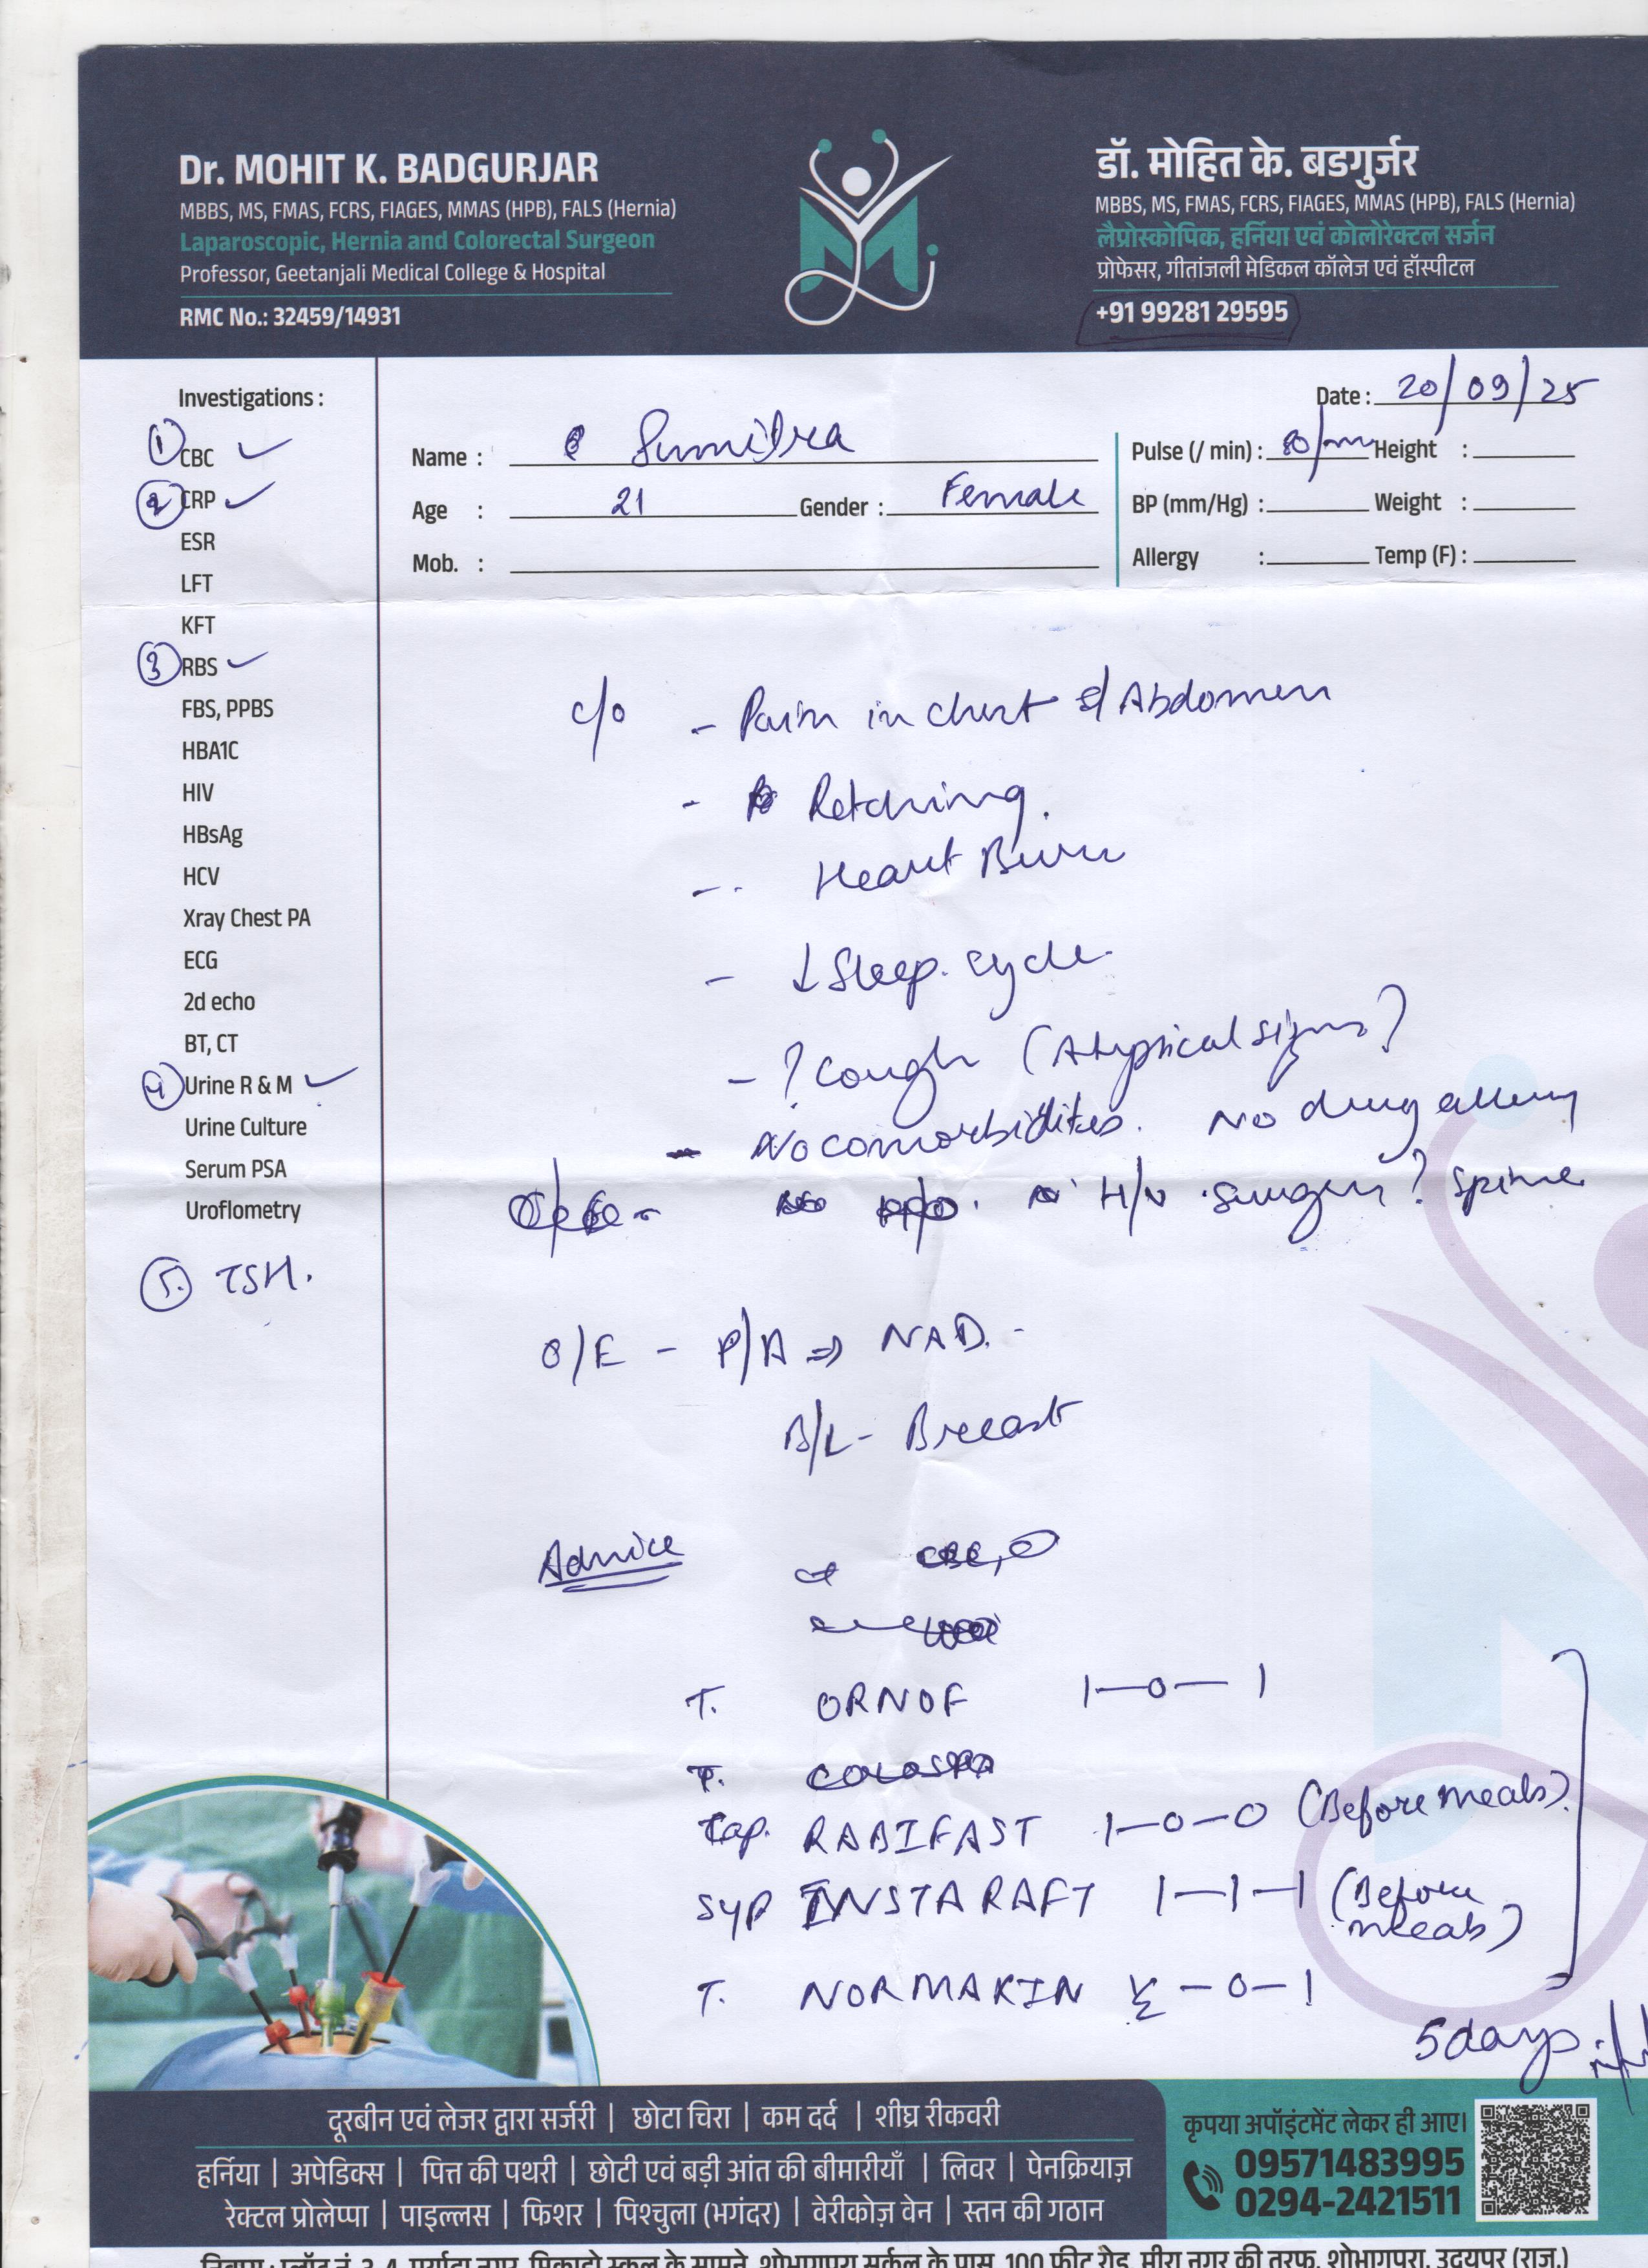 Dr. MOHIT K. BADGURJAR
MBBS, MS, FMAS, FCRS, FIAGES, MMAS (HPB), FALS (Hernia)
Laparoscopic, Hernia and Colorectal Surgeon
Professor, Geetanjali Medical College & Hospital
RMC No.: 32459/14931
डॉ. मोहित के. बडगुर्जर
MBBS, MS, FMAS, FCRS, FIAGES, MMAS (HPB), FALS (Hernia)
लैप्रोस्कोपिक, हर्निया एवं कोलोरेक्टल सर्जन
प्रोफेसर, गीतांजली मेडिकल कॉलेज एवं हॉस्पीटल
+91 99281 29595
Date : 20/09/25
Name : Sumitra
Age : 21 Gender : Female
Mob. :
Pulse (/ min) : 80/min Height :
BP (mm/Hg) : Weight :
Allergy : Temp (F) :
Investigations :
① CBC ✓
② CRP ✓
ESR
LFT
KFT
③ RBS ✓
FBS, PPBS
HBA1C
HIV
HBsAg
HCV
Xray Chest PA
ECG
2d echo
BT, CT
④ Urine R & M ✓
Urine Culture
Serum PSA
Uroflometry
⑤. TSH.
c/o - Pain in chest & Abdomen
- Retching.
- Heart Burn
- ↓ Sleep. cycle.
- ? Cough (Atypical signs?
- No comorbidites. No drug allergy
H/o surgery? spine
O/E - P/A ⇒ NAD.
B/L - Breast
Advice
T. ORNOF 1-0-1
Cap. RABIFAST 1-0-0 (Before meals).
SYP INSTARAFT 1-1-1 (Before meals)
T. NORMAXIN 1/2-0-1
5 days
दूरबीन एवं लेजर द्वारा सर्जरी | छोटा चिरा | कम दर्द | शीघ्र रीकवरी
हर्निया | अपेडिक्स | पित्त की पथरी | छोटी एवं बड़ी आंत की बीमारीयाँ | लिवर | पेनक्रियाज़
रेक्टल प्रोलेप्पा | पाइल्लस | फिशर | पिश्चुला (भगंदर) | वेरीकोज़ वेन | स्तन की गठान
कृपया अपॉइंटमेंट लेकर ही आए।
09571483995
0294-2421511
के सामने, शोभागपुरा सर्कल के पास, 100 फीट रोड, मीरा नगर की तरफ, शोभागपुरा, उदयपुर (राज.)